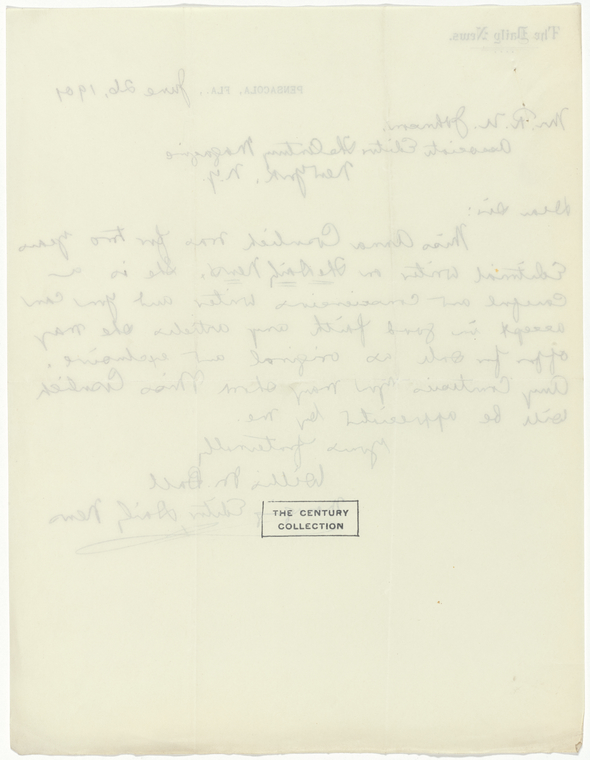 The Daily News.
PENSACOLA, FLA., June 26,
Mr. R. U. Johnson,
Associate Editor The Century Magazine
New York, N.Y.
Dear Sir:
Miss Anna was for two years
Editorial writer on The Daily News. She is a
careful and conscientious writer and you can
accept in good faith any articles she may
offer for sale as original and exclusive.
Any courtesies you may show Miss
will be appreciated by me
Yours fraternally
Willis M Ball
Editor Daily News
THE CENTURY
COLLECTION